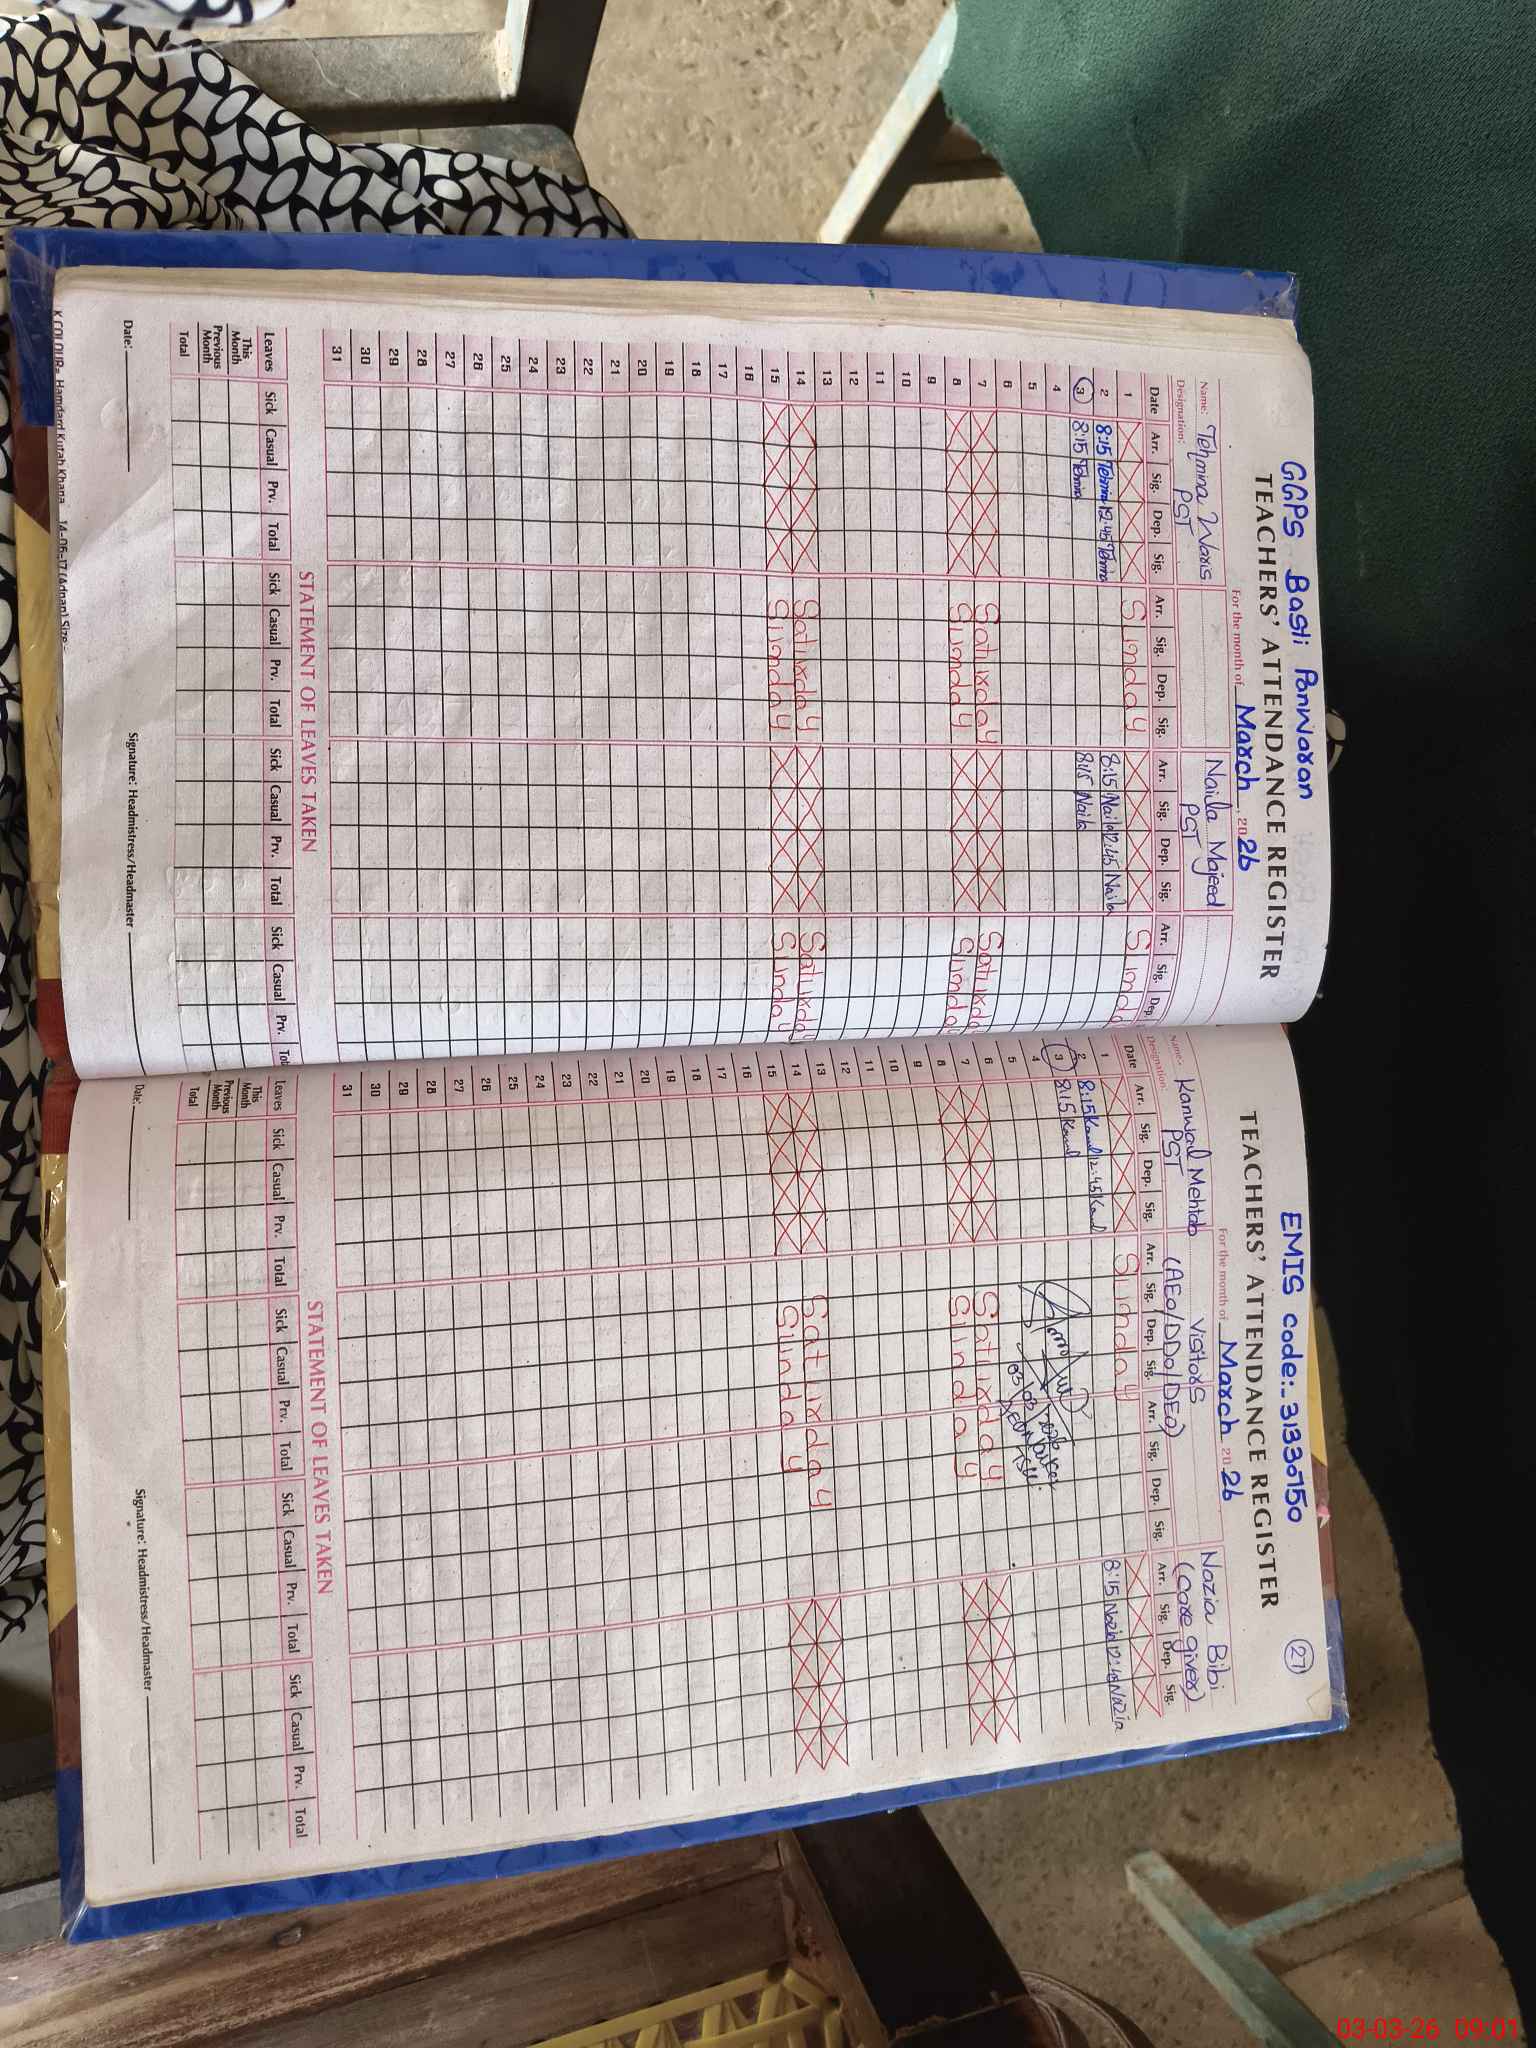 GGPS Basti Panwaran
TEACHERS' ATTENDANCE REGISTER
For the month of March 2026
Name: Tehmina Waris
Naila Majeed
Designation: PST
PST
Date Arr. Sig. Dep. Sig. Arr. Sig. Dep. Sig. Arr. Sig. Dep. Sig. Arr. Sig. Dep.
1 Sunday Sunday
2 8:15 Tehmina 12:45 Tehmina 8:15 Naila 12:45 Naila
3 8:15 Tehmina 8:15 Naila
4
5
6
7 Saturday Saturday
8 Sunday Sunday
9
10
11
12
13
14 Saturday Saturday
15 Sunday Sunday
16
17
18
19
20
21
22
23
24
25
26
27
28
29
30
31
STATEMENT OF LEAVES TAKEN
Leaves Sick Casual Prv. Total Sick Casual Prv. Total Sick Casual Prv. Total Sick Casual Prv.
This Month
Previous Month
Total
Date:
Signature: Headmistress/Headmaster
Hamdard Kutab Khana 14-06-17 (Adnan) Size
EMIS Code:- 31330150
27
TEACHERS' ATTENDANCE REGISTER
For the month of March 2026
Name: Kanwal Mehtab
Visitors
Nazia Bibi
Designation: PST
(AEO/DDO/DEO)
(Care giver)
Date Arr. Sig. Dep. Sig. Arr. Sig. Dep. Sig. Arr. Sig. Dep. Sig. Arr. Sig. Dep. Sig.
1 Sunday
2 8:15 Kanwal 12:45 Kanwal 8:15 Nazia 12:45 Nazia
3 8:15 Kanwal
4
5
6
7 Saturday
8 Sunday
9
10
11
12
13
14 Saturday
15 Sunday
16
17
18
19
20
21
22
23
24
25
26
27
28
29
30
31
STATEMENT OF LEAVES TAKEN
Leaves Sick Casual Prv. Total Sick Casual Prv. Total Sick Casual Prv. Total Sick Casual Prv. Total
This Month
Previous Month
Total
Date:
Signature: Headmistress/Headmaster
03-03-26 09:01